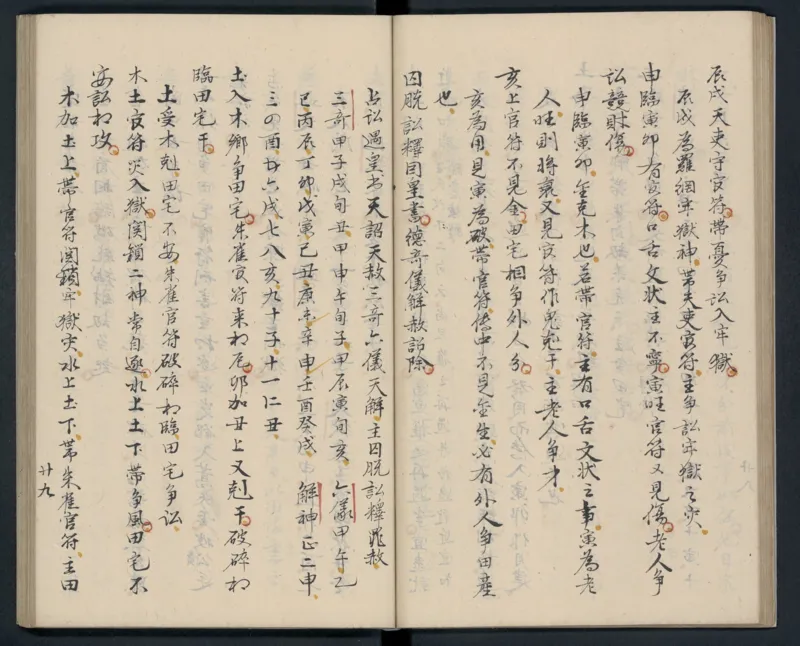 辰戌天吏守官符帶憂爭訟入牢獄
辰戌為羅網牢獄神帶天吏官符主爭訟牢獄之灾
申臨寅卯有官符口舌文狀主不寧寅旺官符又見傷老人爭
訟競財傷
申臨寅卯金克木也若帶官符主有口舌文狀之事寅為老
人旺則將衰又見官符作鬼克干主老人爭才
亥上官符不見金田宅相爭外人
亥為用見寅為破帶官符傳中不見金生必有外人爭田產
也
囚脫訟釋因皇書德奇儀解赦詔除
占訟遇皇書天詔天赦三奇六儀天解主囚脫訟釋罪赦
三奇甲子戌旬丑甲申午旬子甲辰寅旬亥 六儀甲午乙
巳丙辰丁卯戊寅己丑庚未辛申壬酉癸戌 解神正二申
三の酉五六戌七八亥九十子十一仁丑
土入木鄉爭田宅朱雀官符來相厄卯加丑上又剋干破碎相
臨田宅干
土受木剋田宅不安朱雀官符破碎相臨田宅爭訟
木土官符灾入獄関鎖二神常自逐水上土下帶爭風田宅不
安訟相攻
木加土上帶官符関鎖牢獄灾水上土下帶朱雀官符主田
廿九